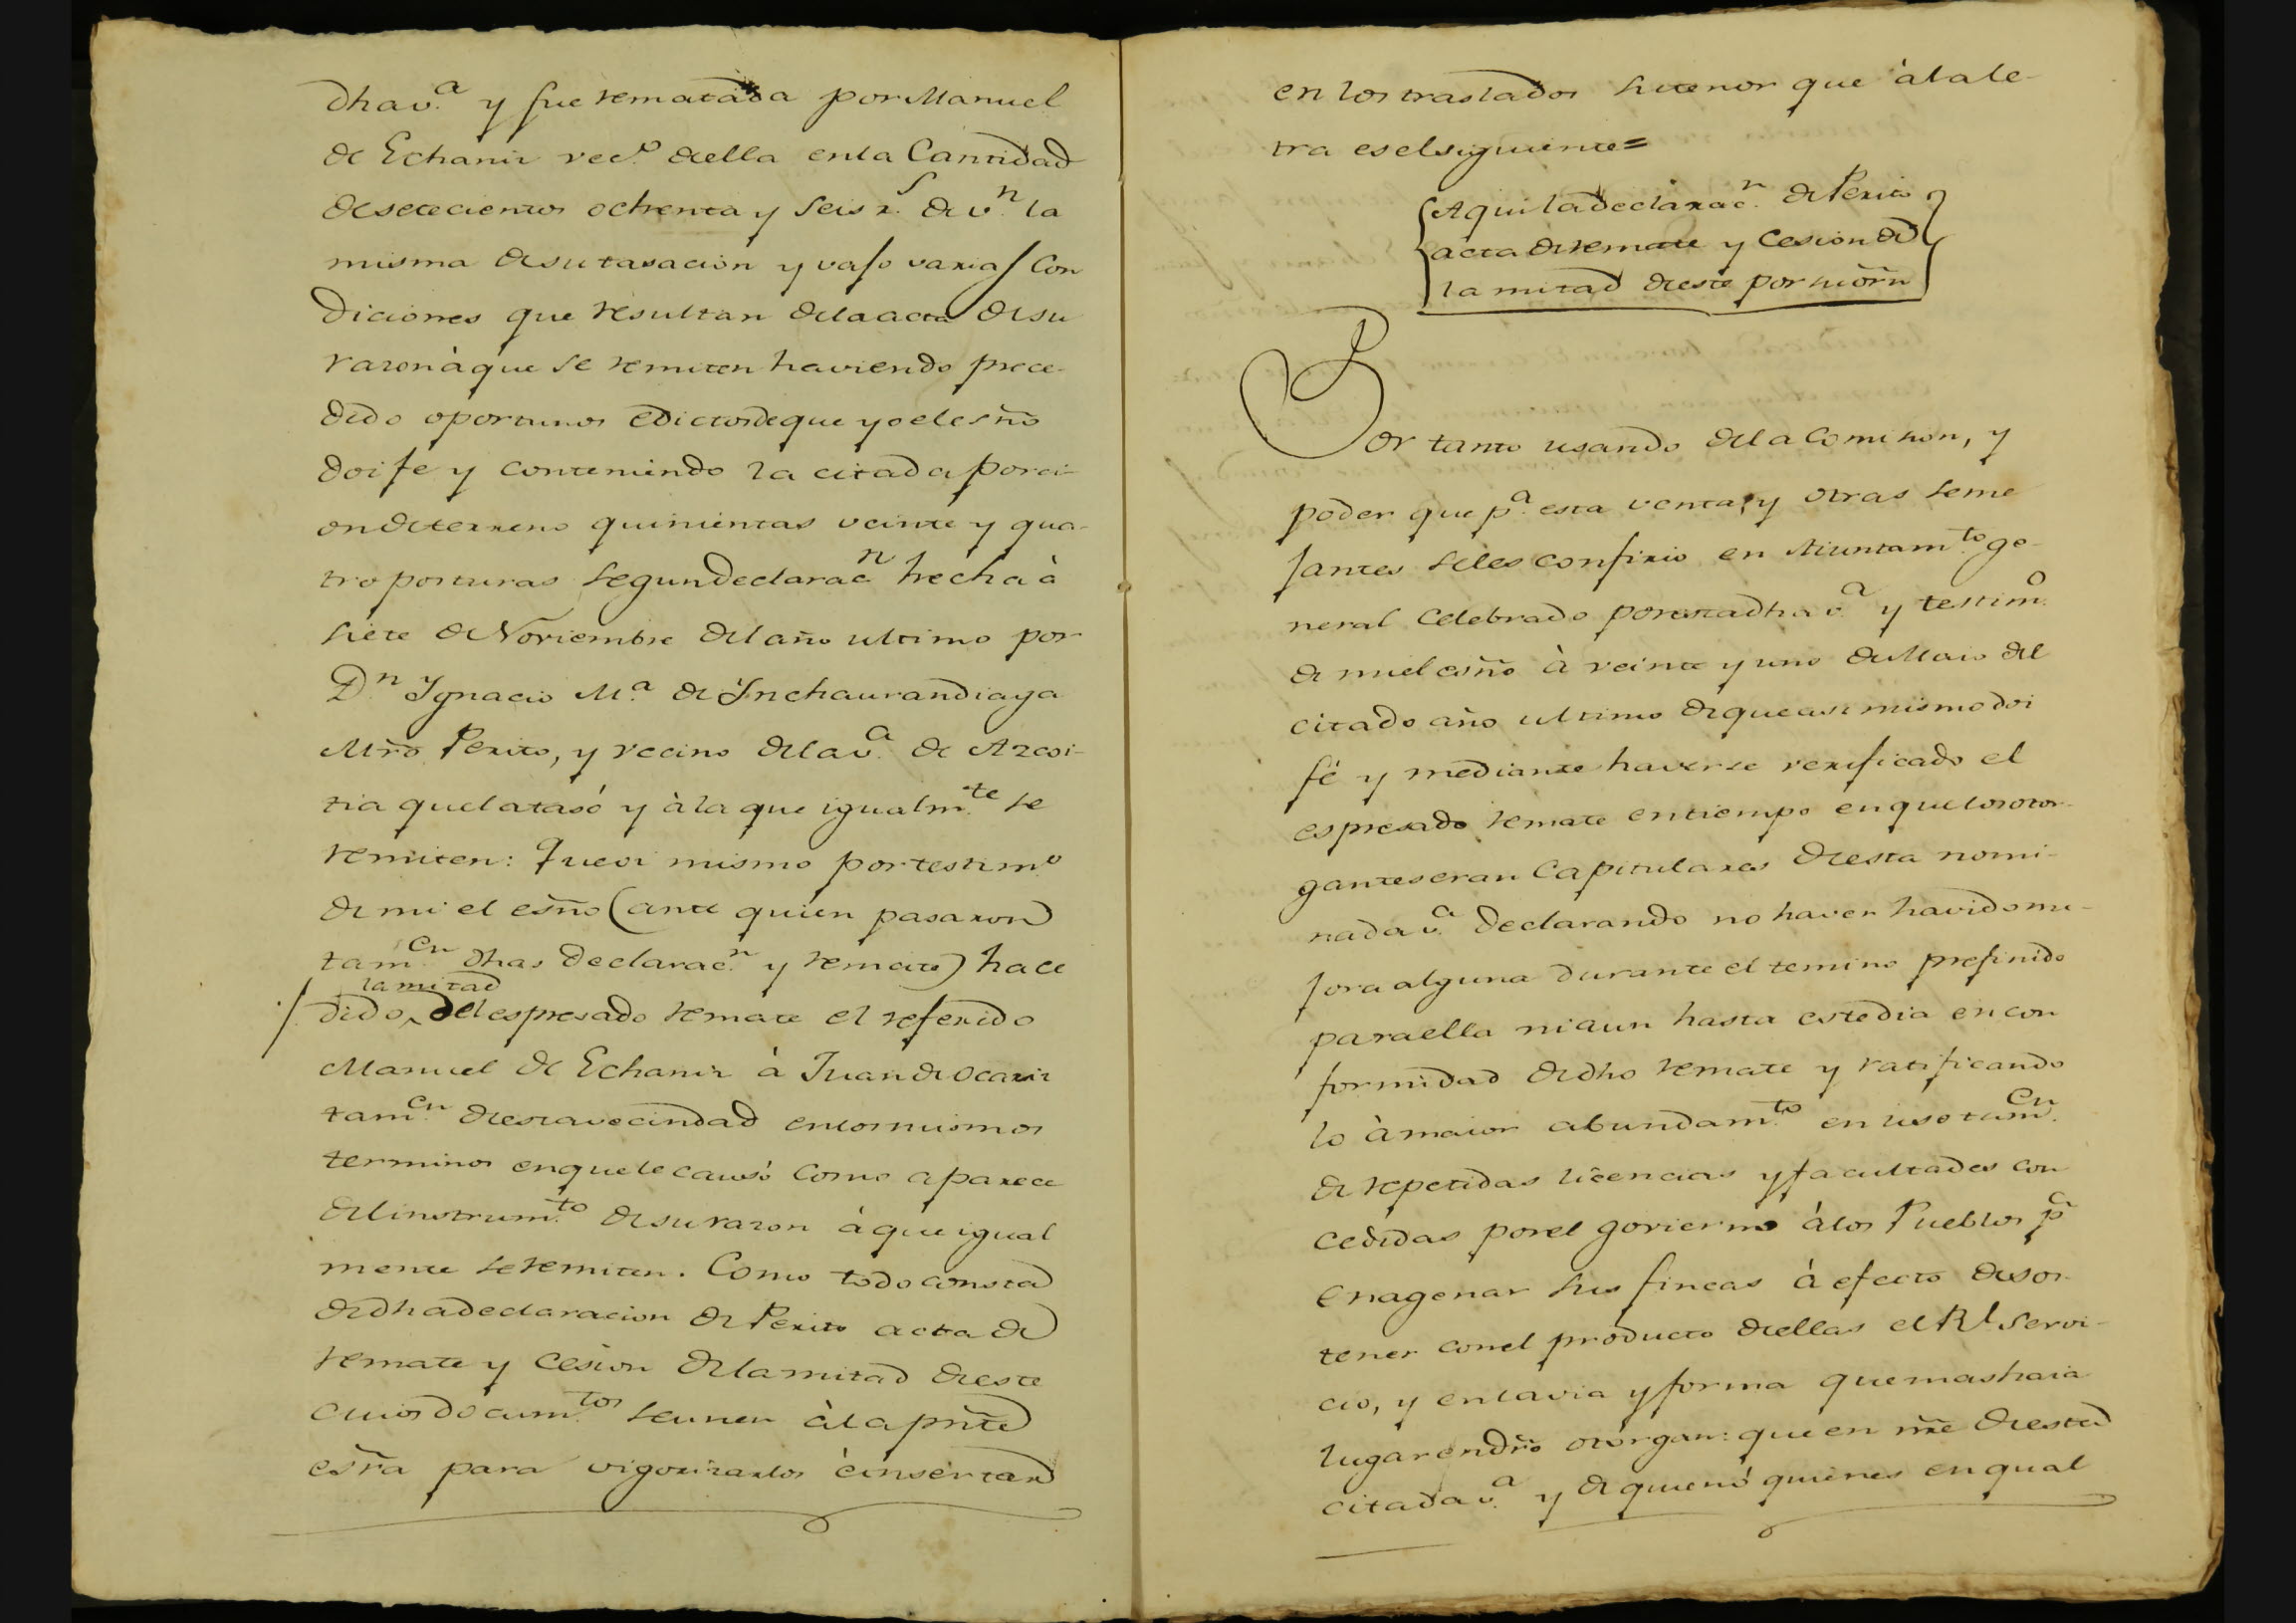 dha v.ª y fue rematada por Manuel
de Echaniz vec.º de ella en la Cantidad
de setecientos ochenta y seis r.s de v.n la
misma de su tasacion y vajo varias Con
diciones que resultan de la acta de su
razon à que se remiten haviendo prece-
dido oportunos edictos de que yo el esño
doi fe y conteniendo la citada porci-
on de terreno quinientas veinte y qua-
tro posturas segun declarac.n hecha à
siete de Noviembre del año ultimo por
D.n Ygnacio M.ª de Ynchaurandiaga
Mrõ Perito, y vecino de la v.ª de Azcoi-
tia que la tasó y à la que igualm.te se
remiten: Que oi mismo por testim.º
de mi el esño (ante quien pasaron
tam.en dhas declarac.n y remate) ha ce
la mitad
dido del espresado remate el referido
Manuel de Echaniz à Juan de Ocariz
tam.en de esta vecindad en los mismos
terminos en que le causó como aparece
del instrum.to de su razon à que igual
mente se remiten. Como todo consta
de dha declaracion de Perito acta de
remate y cesion de la mitad de este
cuios docum.tos se unen à la pñte
esrã para vigorizarlos è insertar
en los traslados su tenor que à la le-
tra es el siguiente=
Aqui la declarac.n de Perito
acta de remate y Cesion de
la mitad de este por su orñ
Por tanto usando de la comision, y
poder que p.ª esta venta, y otras seme
jantes se les confirio en Aiuntam.to ge-
neral celebrado por esta dha v.ª y testim.º
de mi el esño à veinte y uno de Maio del
citado año ultimo de que asi mismo doi
fé y mediante haverse verificado el
espresado remate en tiempo en que los otor-
gantes eran Capitulares de esta nomi-
nada v.ª declarando no haver havido me-
jora alguna durante el temino prefinido
para ella ni aun hasta este dia en con
formidad de dho remate y ratificando
lo à maior abundam.to en uso tam.en
de repetidas licencias y facultades con
cedidas por el govierno à los Pueblos p.ª
enagenar sus fincas à efecto de sos-
tener con el producto de ellas el Rl servi-
cio, y en la via y forma que mas haia
lugar en drõ otorgan: que en nre de esta
citada v.ª y de quien ó quienes en qual